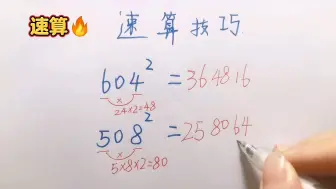 速算🔥
速算技巧
604² = 364816
2×4×2=48
508² = 258064
5×8×2=80